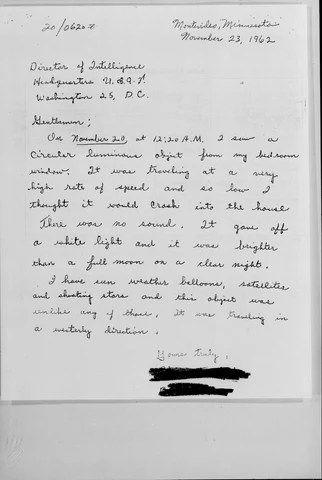 20/0620z
Montevideo, Minnesota
November 23, 1962
Director of Intelligence
Headquarters U.S.A.F.
Washington 25, D.C.
Gentlemen;
On November 20, at 12:20 A.M. I saw a
Circular luminous object from my bedroom
window. It was traveling at a very
high rate of speed and so low I
thought it would crash into the house
There was no sound. It gave off
a white light and it was brighter
than a full moon on a clear night.
I have seen weather balloons, satellites
and shooting stars and this object was
unlike any of those. It was traveling in
a westerly direction.
Yours truly,